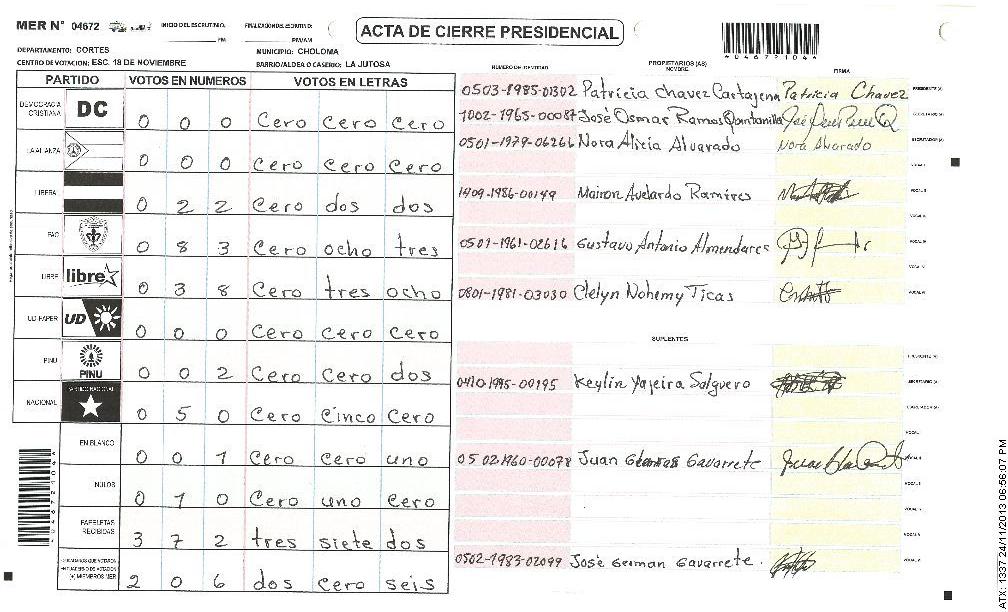 MER N° 04672
INICIO DEL ESCRUTINIO: PM
FINALIZACION DEL ESCRUTINIO: PM/AM
ACTA DE CIERRE PRESIDENCIAL
DEPARTAMENTO: CORTES
MUNICIPIO: CHOLOMA
CENTRO DE VOTACION: ESC. 18 DE NOVIEMBRE
BARRIO/ALDEA O CASERIO: LA JUTOSA
PARTIDO VOTOS EN NUMEROS VOTOS EN LETRAS
DEMOCRACIA CRISTIANA DC 0 0 0 Cero Cero Cero
LA ALIANZA 0 0 0 Cero Cero Cero
LIBERAL 0 2 2 Cero dos dos
PAC 0 8 3 Cero ocho tres
LIBRE libre 0 3 8 Cero tres ocho
UD-FAPER UD 0 0 0 Cero Cero Cero
PINU PINU 0 0 2 Cero Cero dos
NACIONAL PARTIDO NACIONAL 0 5 0 Cero Cinco Cero
EN BLANCO 0 0 1 Cero Cero uno
NULOS 0 1 0 Cero uno Cero
PAPELETAS RECIBIDAS 3 7 2 tres siete dos
CIUDADANOS QUE VOTARON EN CUADERNO DE VOTACION (+) MIEMBROS MER 2 0 6 dos cero seis
NUMERO DE IDENTIDAD PROPIETARIOS (AS) NOMBRE FIRMA
0503-1985-01302 Patricia Chavez Cartajena Patricia Chavez PRESIDENTE (A)
1002-1965-00087 José Osmar Ramos Quintanilla SECRETARIO (A)
0501-1979-06266 Nora Alicia Alvarado Nora Alvarado ESCRUTADOR (A)
VOCAL I
1409-1986-00149 Mairon Avelardo Ramires VOCAL II
VOCAL III
0501-1961-02616 Gustavo Antonio Almendares VOCAL IV
VOCAL V
0801-1981-03030 Clelyn Nohemy Ticas VOCAL VI
SUPLENTES
PRESIDENTE (A)
0410-1995-00195 Keylin Yajeira Salguero SECRETARIO (A)
ESCRUTADOR (A)
VOCAL I
0502-1960-00078 Juan Gavarrete VOCAL II
VOCAL III
VOCAL IV
VOCAL V
0502-1983-02099 José German Gavarrete VOCAL VI
*046721044*
ATX: 1337 24/11/2013 06:56:07 PM